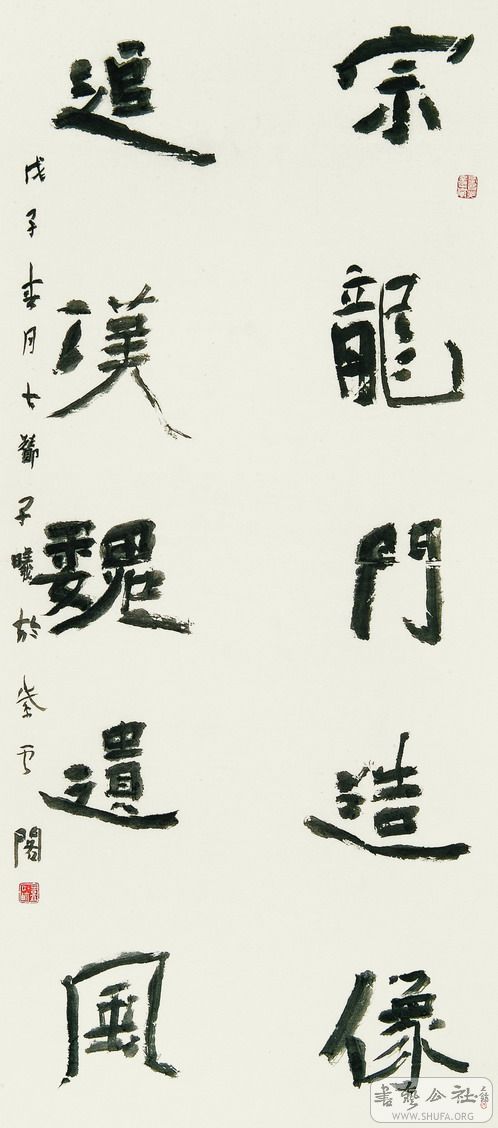 宗龍門造像
追漢魏遺風
戊子春月七節子曦於紫雲閣
書藝公社
WWW.SHUFA.ORG